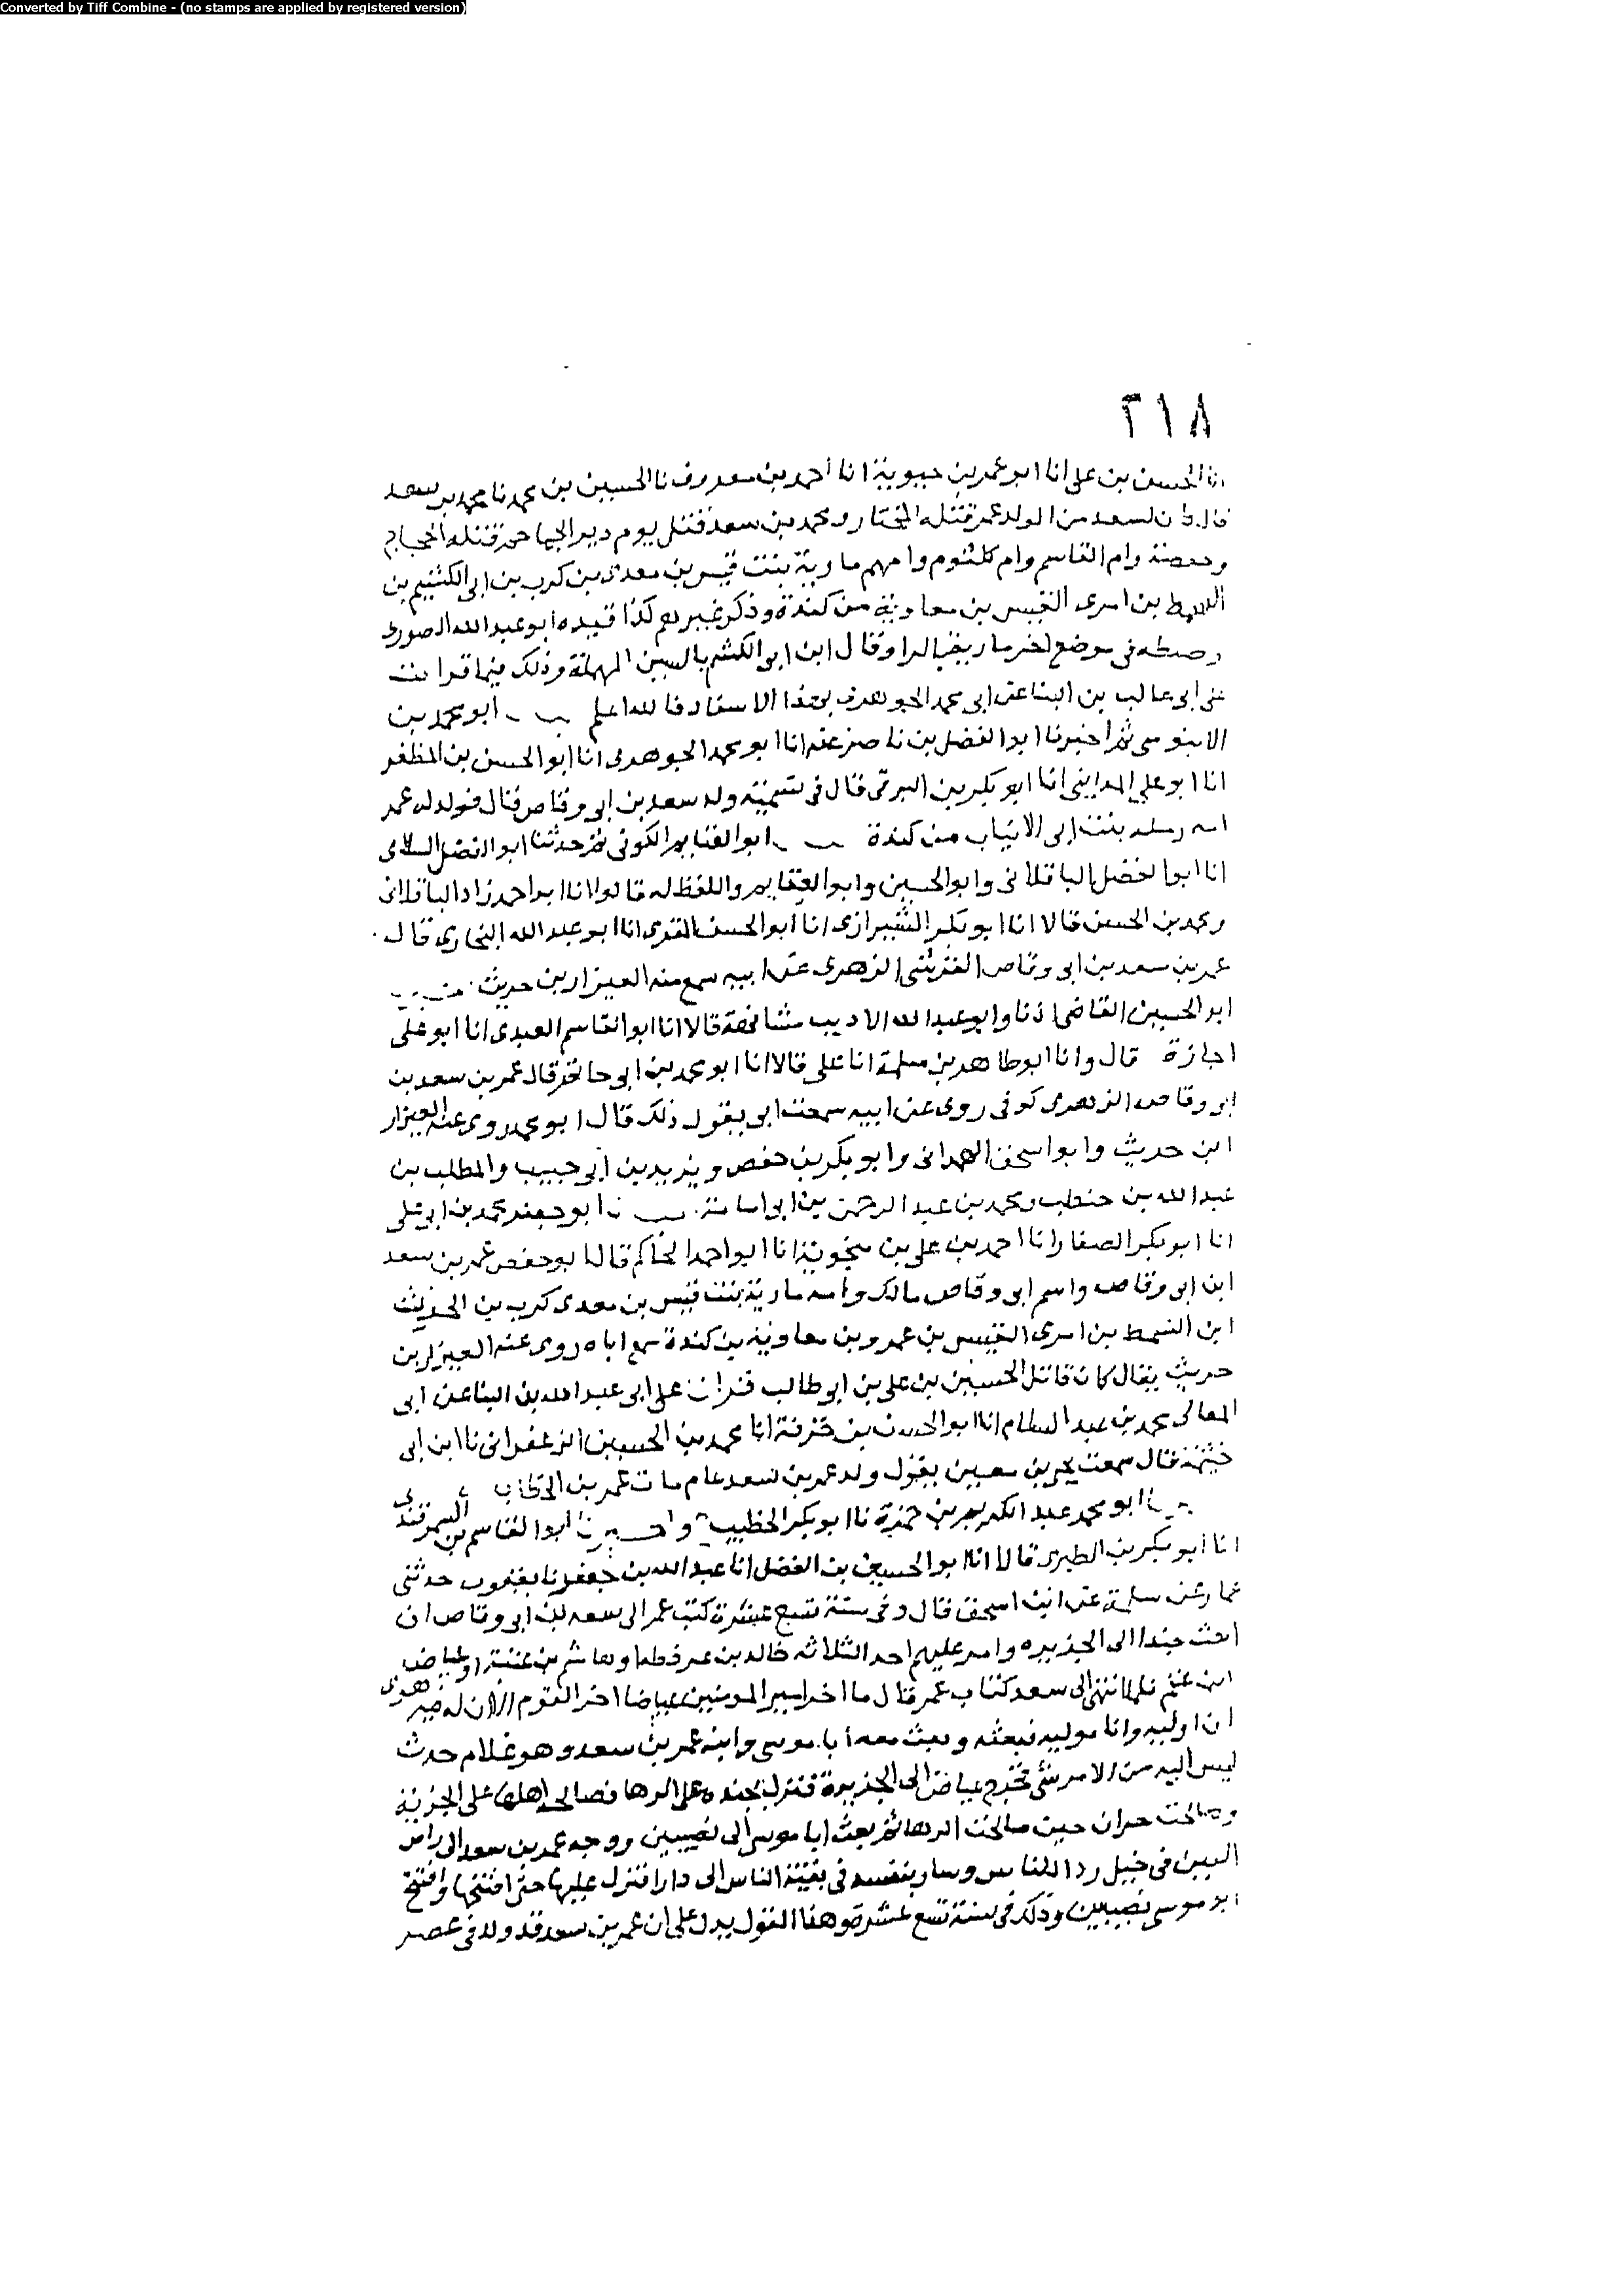 Converted by Tiff Combine - (no stamps are applied by registered version)
٣١٨
انا الحسن بن على انا ابو عمر بن حيوية انا احمد بن معروف نا الحسين بن محمد نا محمد بن سعد
قال كان لسعد من الولد عمر قتله المختار ومحمد بن سعد قتل يوم دير الجماجم قتله الحجاج
وحفصة وام القاسم وام كلثوم وامهم ماوية بنت قيس بن معدى بن كرب بن ابى الكثيم بن
السمط بن امرى القيس بن معاوية من كندة وذكر غيرهم كذا قيده ابو عبد الله الصورى
وضبطه فى موضع اخر مارية بالرا وقال ابن ابى الكشم بالسين المهملة وذلك فيما قرات
على ابى غالب بن البنا عن ابى محمد الجوهرى بهذا الاسناد فالله اعلم ابو محمد بن
الابنوسى ثم اخبرنا ابو الفضل بن ناصر عنه انا ابو محمد الجوهرى انا ابو الحسن بن المظفر
انا ابو على المداينى انا ابو بكر بن البرقى قال فى تسمية ولد سعد بن ابى وقاص قال فولد له عمر
امه رملة بنت ابى الانياب من كندة ابو الغنايم الكوفى ثم حدثنا ابو الفضل السلامى
انا ابو الفضل الباقلانى وابو الحسين وابو الغنايم واللفظ له قالوا انا ابو احمد زاد الباقلانى
ومحمد بن الحسن قالا انا ابو بكر الشيرازى انا ابو الحسن المقرى انا ابو عبد الله البخارى قال
عمر بن سعد بن ابى وقاص القرشى الزهرى عن ابيه سمع منه العيزار بن حريث
ابو الحسين القاضى اذنا وابو عبد الله الاديب مشافهة قالا انا ابو القاسم العبدى انا ابو على
اجازة قال وانا ابو طاهر بن سلمة انا على قالا انا ابو محمد بن ابى حاتم قال عمر بن سعد بن
ابى وقاص الزهرى كوفى روى عن ابيه سمعت ابى يقول ذلك قال ابو محمد روى عنه العيزار
ابن حريث وابو اسحق الهمدانى وابو بكر بن حفص ويزيد بن ابى حبيب والمطلب بن
عبد الله بن حنطب ومحمد بن عبد الرحمن بن ابى لبيبة ابو جعفر محمد بن ابى على
انا ابو بكر الصفار انا احمد بن على بن منجوية انا ابو احمد الحاكم قال ابو حفص عمر بن سعد
ابن ابى وقاص واسم ابى وقاص مالك وامه مارية بنت قيس بن معدى كرب بن الحريث
ابن السمط بن امرى القيس بن عمرو بن معاوية بن كندة سمع اباه روى عنه العيزار بن
حريث يقال كان قاتل الحسين بن على بن ابى طالب قرات على ابى عبد الله بن البنا عن ابى
المعالى محمد بن عبد السلام انا ابو الحسن بن خزفة انا محمد بن الحسين الزعفرانى نا ابن ابى
خيثمة قال سمعت يحيى بن معين يقول ولد عمر بن سعد عام مات عمر بن الخطاب
ابو محمد عبد الكريم بن حمزة نا ابو بكر الخطيب ح واخبرنا ابو القاسم بن السمرقندى
انا ابو بكر بن الطبرى قالا انا ابو الحسين بن الفضل انا عبد الله بن جعفر نا يعقوب حدثنى
عمار عن سلمة عن ابن اسحق قال وفى سنة تسع عشرة كتب عمر الى سعد بن ابى وقاص ان
ابعث جندا الى الجزيره وامر عليهم احد الثلاثه خالد بن عرفطه او هاشم بن عتبة او عياض
ابن غنم فلما انتهى الى سعد كتاب عمر قال ما اخر امير المومنين عياضا اخر القوم الا ان له فيه هوى
ان اوليه وانا موليه فبعثه وبعث معه ابا موسى وابنه عمر بن سعد وهو غلام حدث
ليس اليه من الامر شئ فخرج عياض الى الجزيرة فنزل بجنده على الرها فصالحه اهلها على الجزية
وصالحت حران حين صالحت الرها ثم بعث ابا موسى الى نصيبين ووجه عمر بن سعد الى راس
العين فى خيل ردا للناس وسار بنفسه فى بقية الناس الى دارا فنزل عليها حتى افتتحها وافتتح
ابو موسى نصيبين وذلك فى سنة تسع عشرة وهذا القول يدل على ان عمر بن سعد قد ولد فى عصر